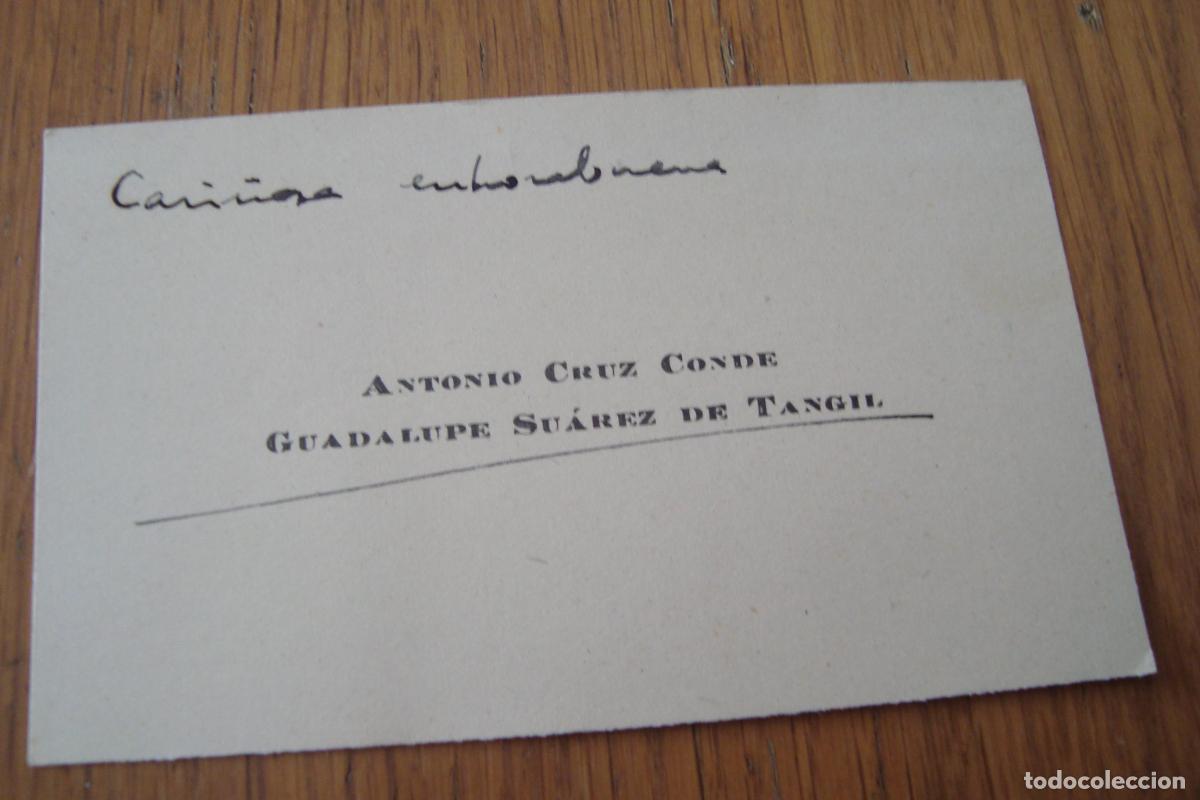 Cariñosa enhorabuena
ANTONIO CRUZ CONDE
GUADALUPE SUÁREZ DE TANGIL
todocoleccion